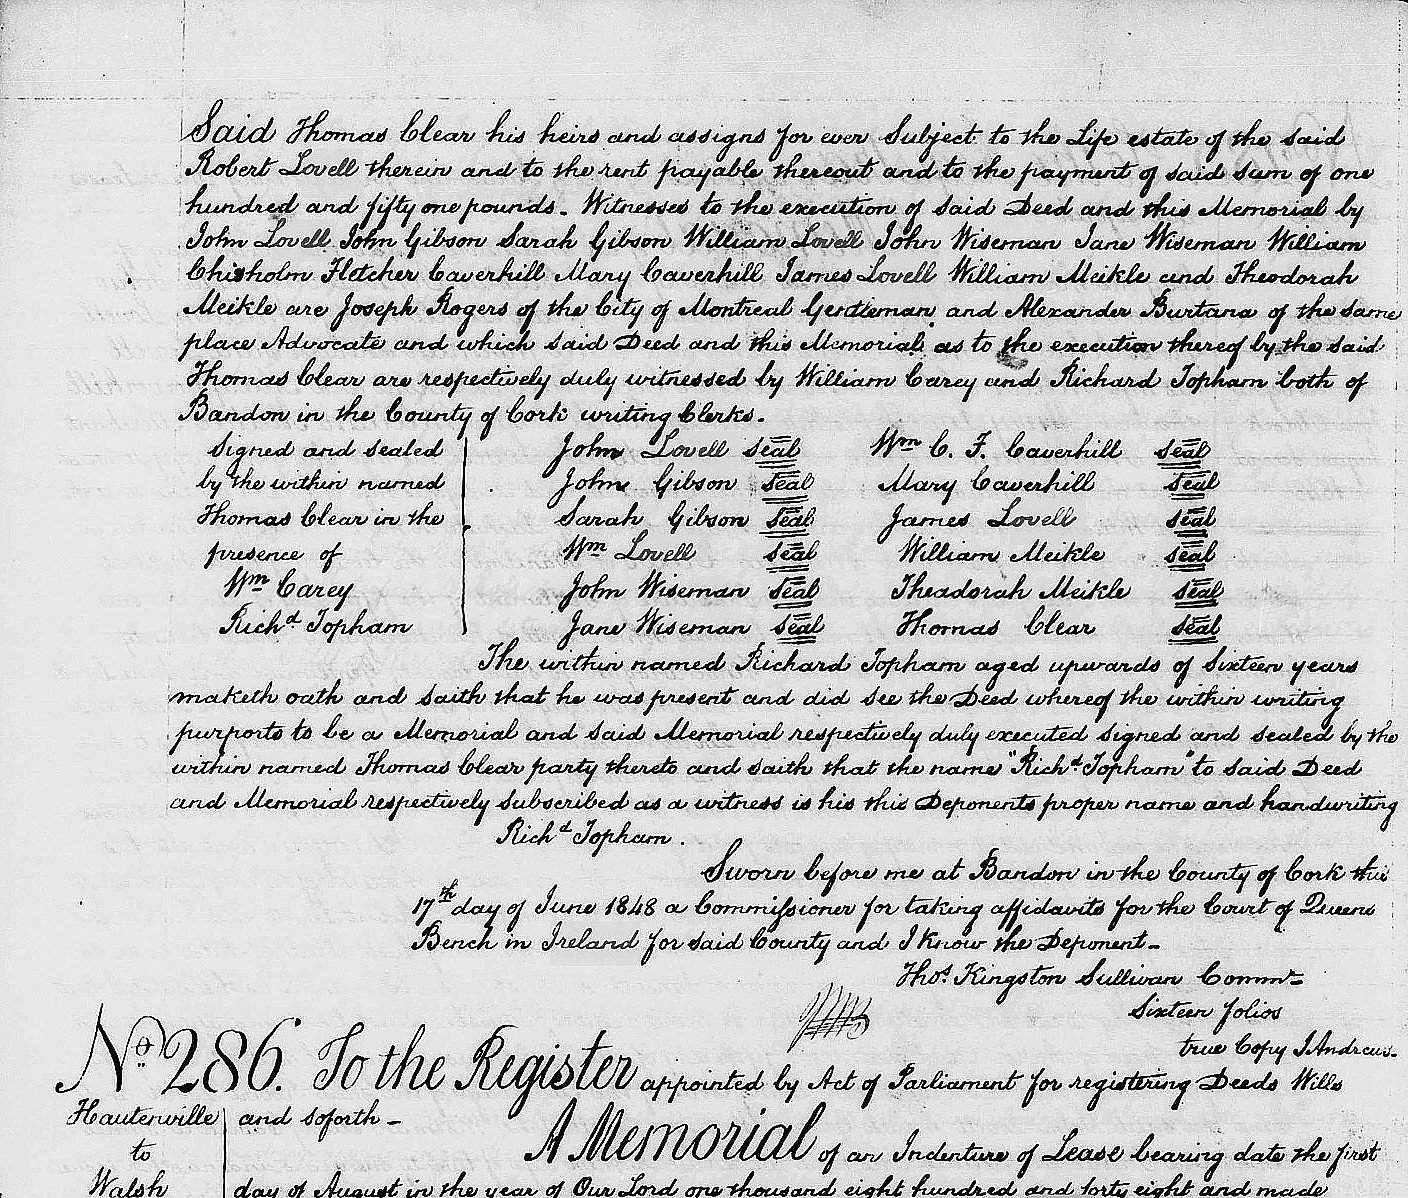 Said Thomas Clear his heirs and assigns for ever Subject to the Life estate of the said
Robert Lovell therein and to the rent payable thereout and to the payment of said sum of one
hundred and fifty one pounds. Witnesses to the execution of Said Deed and this Memorial by
John Lovell John Gibson Sarah Gibson William Lovell John Wiseman Jane Wiseman William
Chisholm Fletcher Caverhill Mary Caverhill James Lovell William Meikle and Theodorah
Meikle are Joseph Rogers of the City of Montreal Gentleman and Alexander Burtana of the same
place Advocate and which said Deed and this Memorial as to the execution thereof by the said
Thomas Clear are respectively duly witnessed by William Carey and Richard Topham both of
Bandon in the County of Cork writing Clerks.
Signed and sealed John Lovell seal Wm C. F. Caverhill seal
by the within named John Gibson seal Mary Caverhill seal
Thomas Clear in the Sarah Gibson seal James Lovell seal
presence of Wm Lovell seal William Meikle seal
Wm Carey John Wiseman seal Theadorah Meikle seal
Richd Topham Jane Wiseman seal Thomas Clear seal
The within named Richard Topham aged upwards of Sixteen years
maketh oath and saith that he was present and did see the Deed whereof the within writing
purports to be a Memorial and said Memorial respectively duly executed signed and sealed by the
within named Thomas Clear party thereto and saith that the name "Richd Topham" to said Deed
and Memorial respectively subscribed as a witness is his this Deponents proper name and handwriting
Richd Topham.
Sworn before me at Bandon in the County of Cork this
17th day of June 1848 a Commissioner for taking affidavits for the Court of Queens
Bench in Ireland for said County and I know the Deponent-
Thos Kingston Sullivan Commr
Sixteen folios
true Copy J Andrews.
No 286. To the Register appointed by Act of Parliament for registering Deeds Wills
Hautenville and soforth-
to A Memorial of an Indenture of Lease bearing date the first
Walsh day of August in the year of Our Lord one thousand eight hundred and forty eight and made